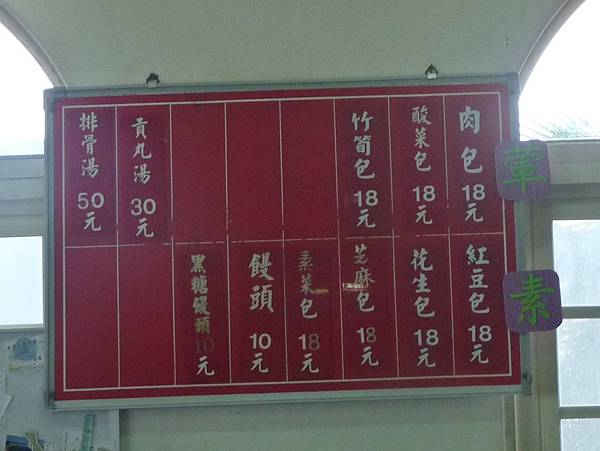 葷
肉包18元
酸菜包18元
竹筍包18元
貢丸湯30元
排骨湯50元
素
紅豆包18元
花生包18元
芝麻包18元
素菜包18元
饅頭10元
黑糖饅頭10元